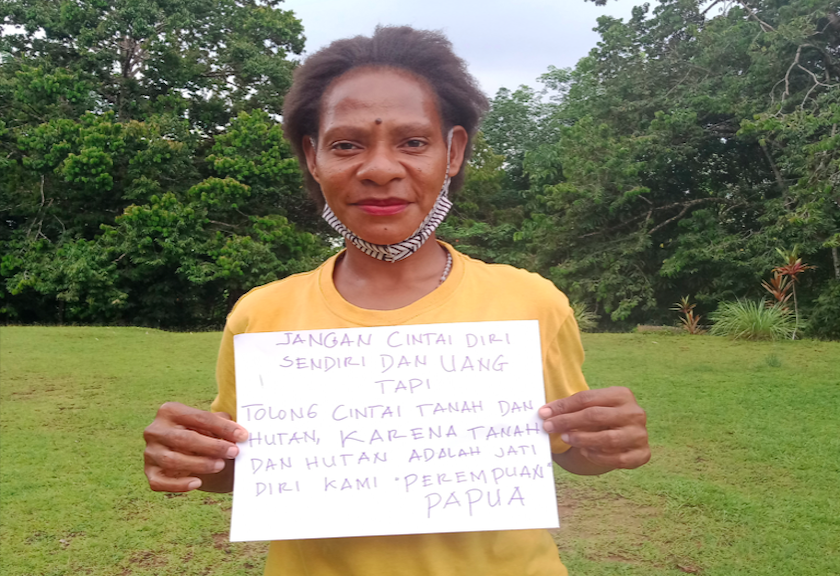 JANGAN CINTAI DIRI
SENDIRI DAN UANG
TAPI
TOLONG CINTAI TANAH DAN
HUTAN, KARENA TANAH
DAN HUTAN ADALAH JATI
DIRI KAMI "PEREMPUAN"
PAPUA